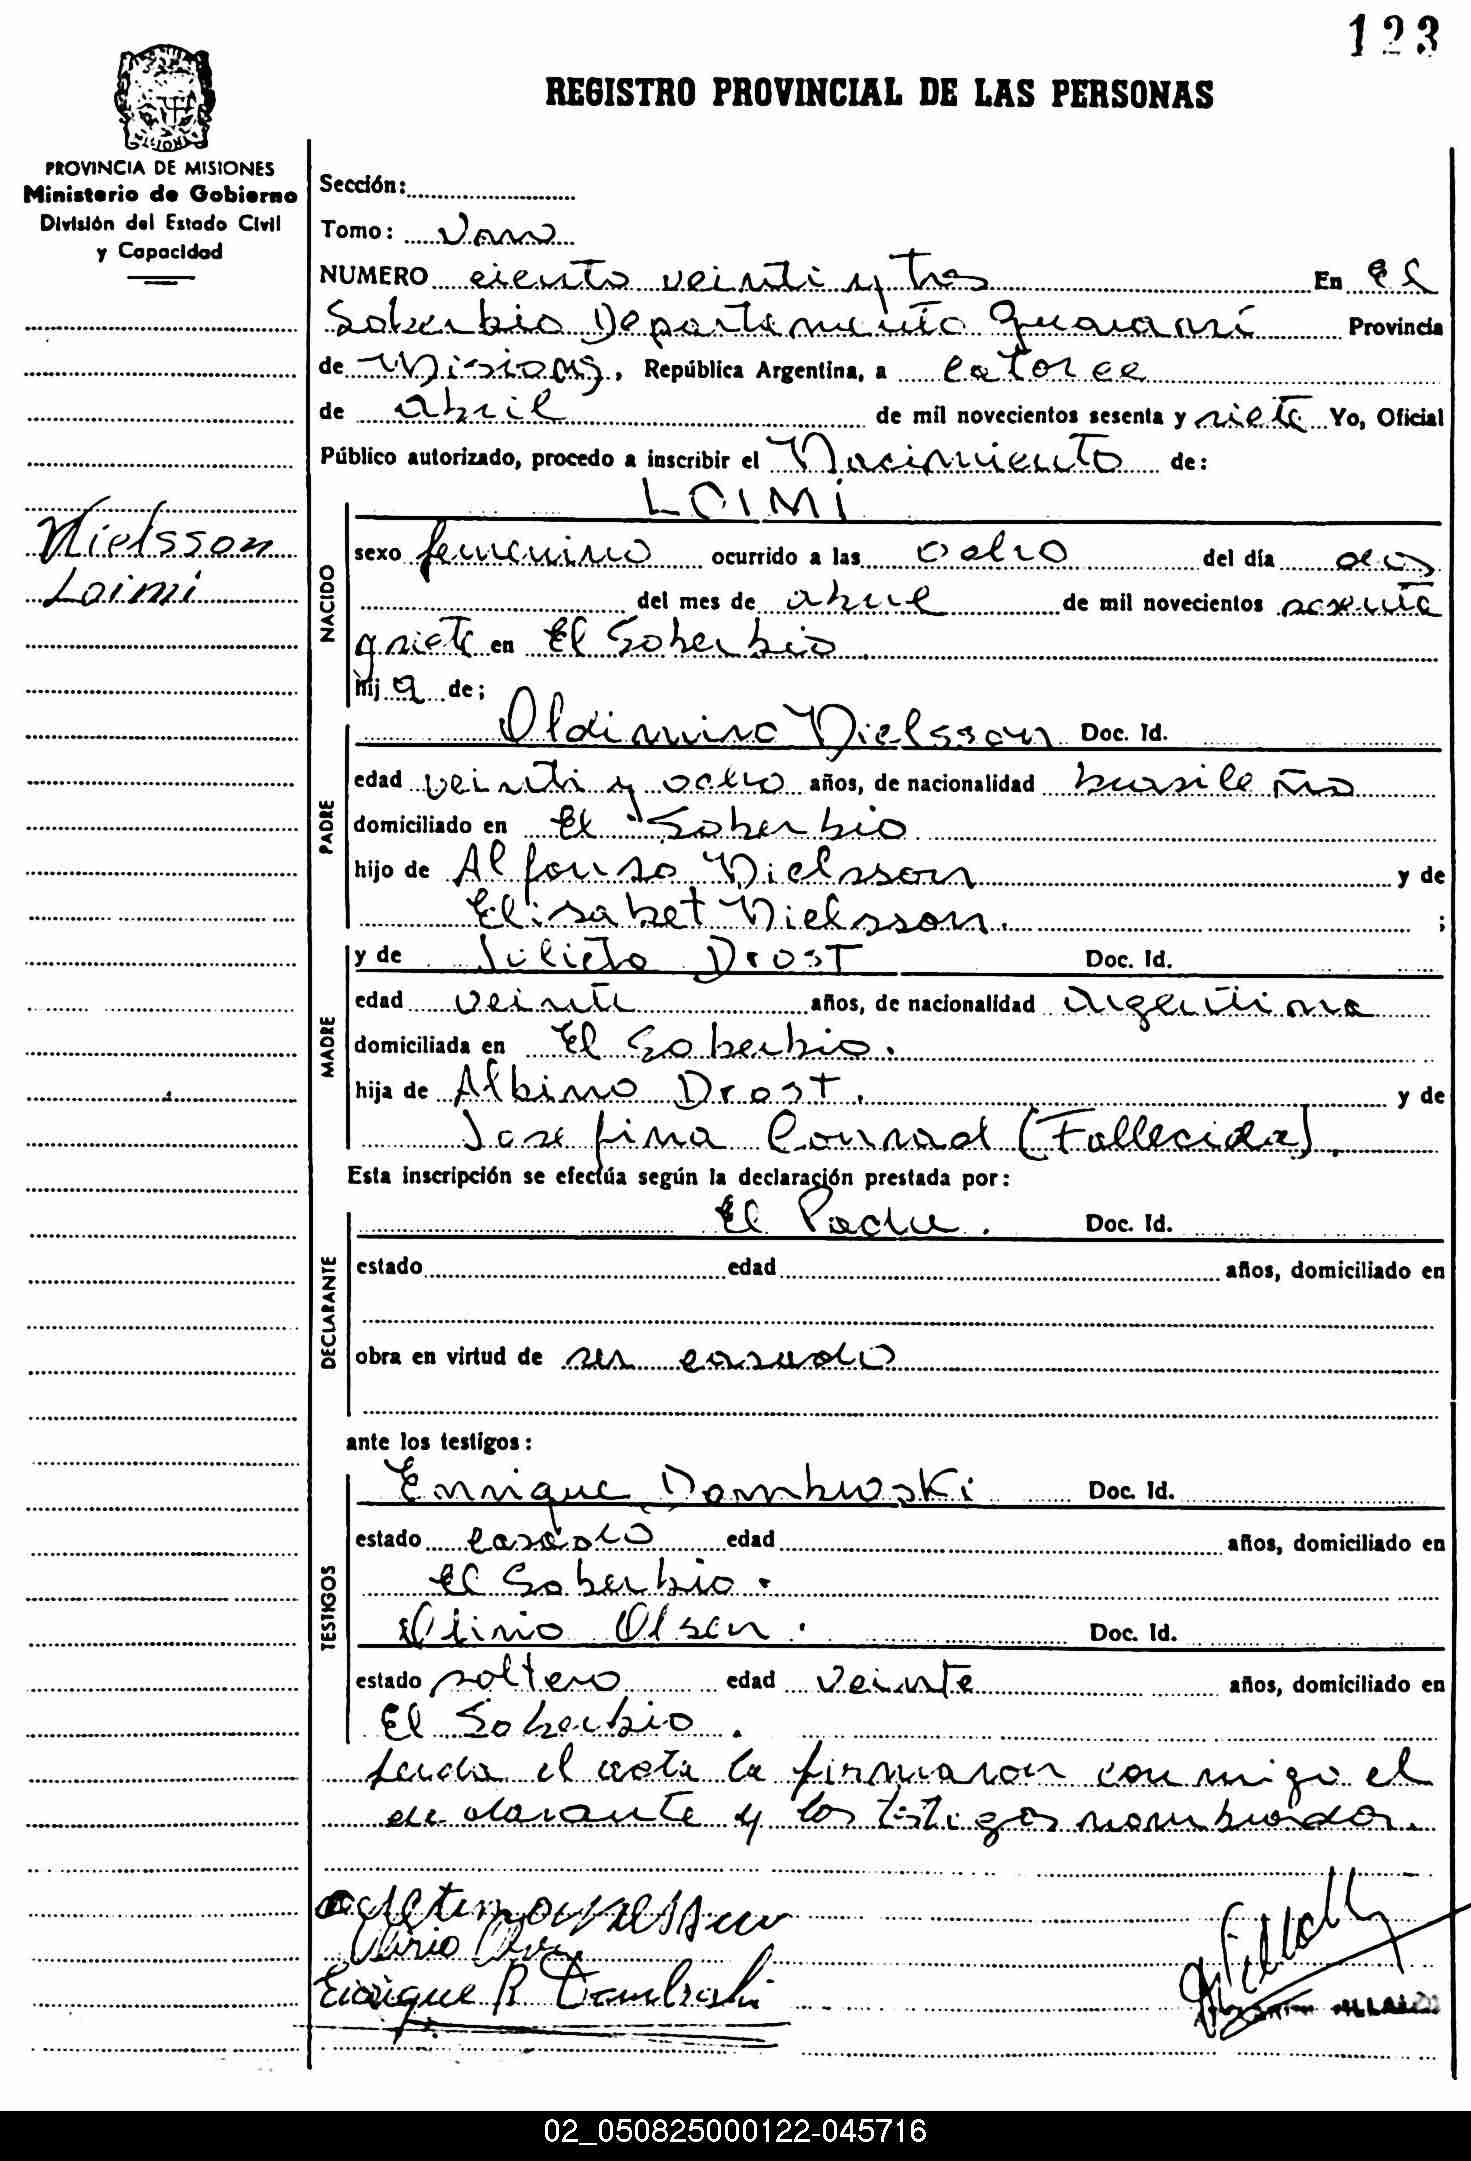 123
REGISTRO PROVINCIAL DE LAS PERSONAS
PROVINCIA DE MISIONES
Ministerio de Gobierno
División del Estado Civil
y Capacidad
Sección:
Tomo: Uno
NUMERO ciento veinti y tres En El
Soberbio Departamento Guaraní Provincia
de Misiones, República Argentina, a catorce
de abril de mil novecientos sesenta y siete Yo, Oficial
Público autorizado, procedo a inscribir el Nacimiento de:
Nielsson
Loimi
NACIDO
LOIMI
sexo femenino ocurrido a las ocho del día dos
del mes de abril de mil novecientos sesenta
y siete en El Soberbio
hij a de:
PADRE
Oldimiro Nielsson Doc. Id.
edad veinti y ocho años, de nacionalidad brasileño
domiciliado en El Soberbio
hijo de Alfonso Nielsson y de
Elisabet Nielsson. ;
MADRE
y de Julieta Drost Doc. Id.
edad veinte años, de nacionalidad Argentina
domiciliada en El Soberbio.
hija de Albino Drost. y de
Josefina Conrad (Fallecida).
Esta inscripción se efectúa según la declaración prestada por:
DECLARANTE
El Padre. Doc. Id.
estado edad años, domiciliado en
obra en virtud de ser casado
ante los testigos:
TESTIGOS
Enrique Dombroski Doc. Id.
estado casado edad años, domiciliado en
El Soberbio.
Olirio Olsen. Doc. Id.
estado soltero edad veinte años, domiciliado en
El Soberbio.
Leida el acta la firmaron conmigo el
declarante y los testigos nombrados.
Enrique R Dombroski
02_050825000122-045716